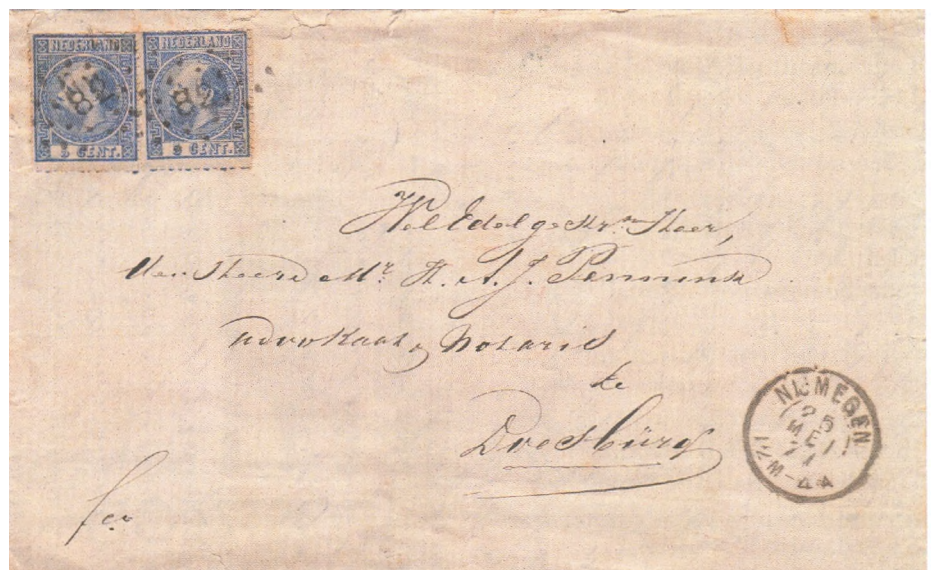 NEDERLAND NEDERLAND
82 82
5 CENT. 5 CENT.
WelEdelgestr. Heer,
den Heere Mr. H. A. J. Pennink
advokaat, Notaris
te
Doesburg
NIJMEGEN
25
MEI
71
12M-4A